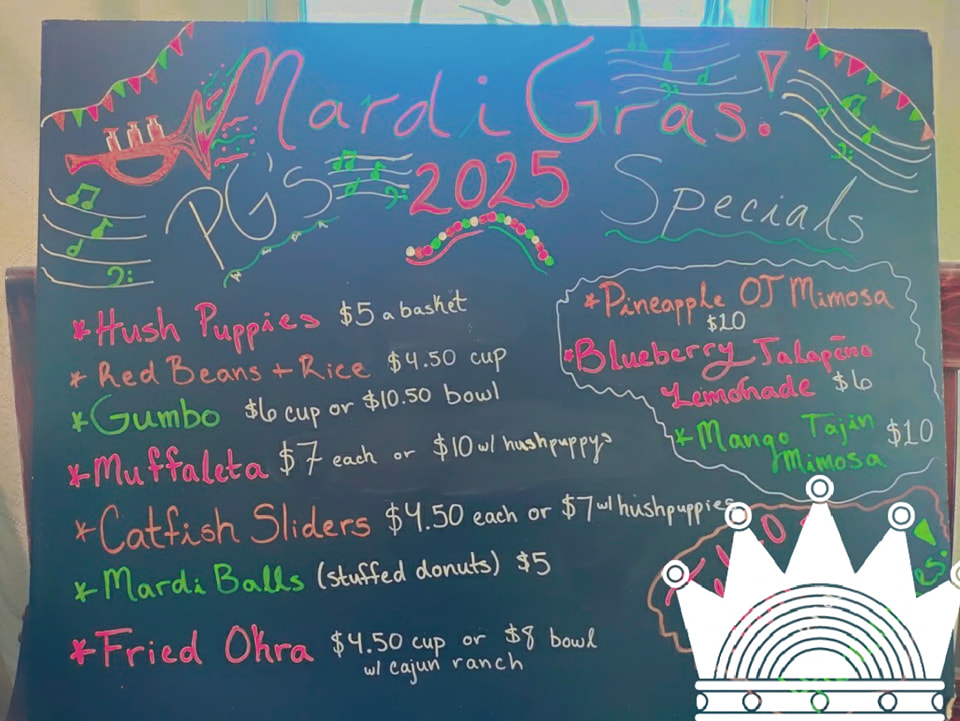 Mardi Gras.
PG'S 2025 Specials
*Hush Puppies $5 a basket
*Red Beans + Rice $4.50 cup
*Gumbo $6 cup or $10.50 bowl
*Muffaleta $7 each or $10 w/ hushpuppys
*Catfish Sliders $4.50 each or $7 w/ hushpuppies
*Mardi Balls (stuffed donuts) $5
*Fried Okra $4.50 cup or $8 bowl
w/ cajun ranch
*Pineapple OJ Mimosa
$10
*Blueberry Jalapēno
Lemonade $6
*Mango Tajin $10
Mimosa